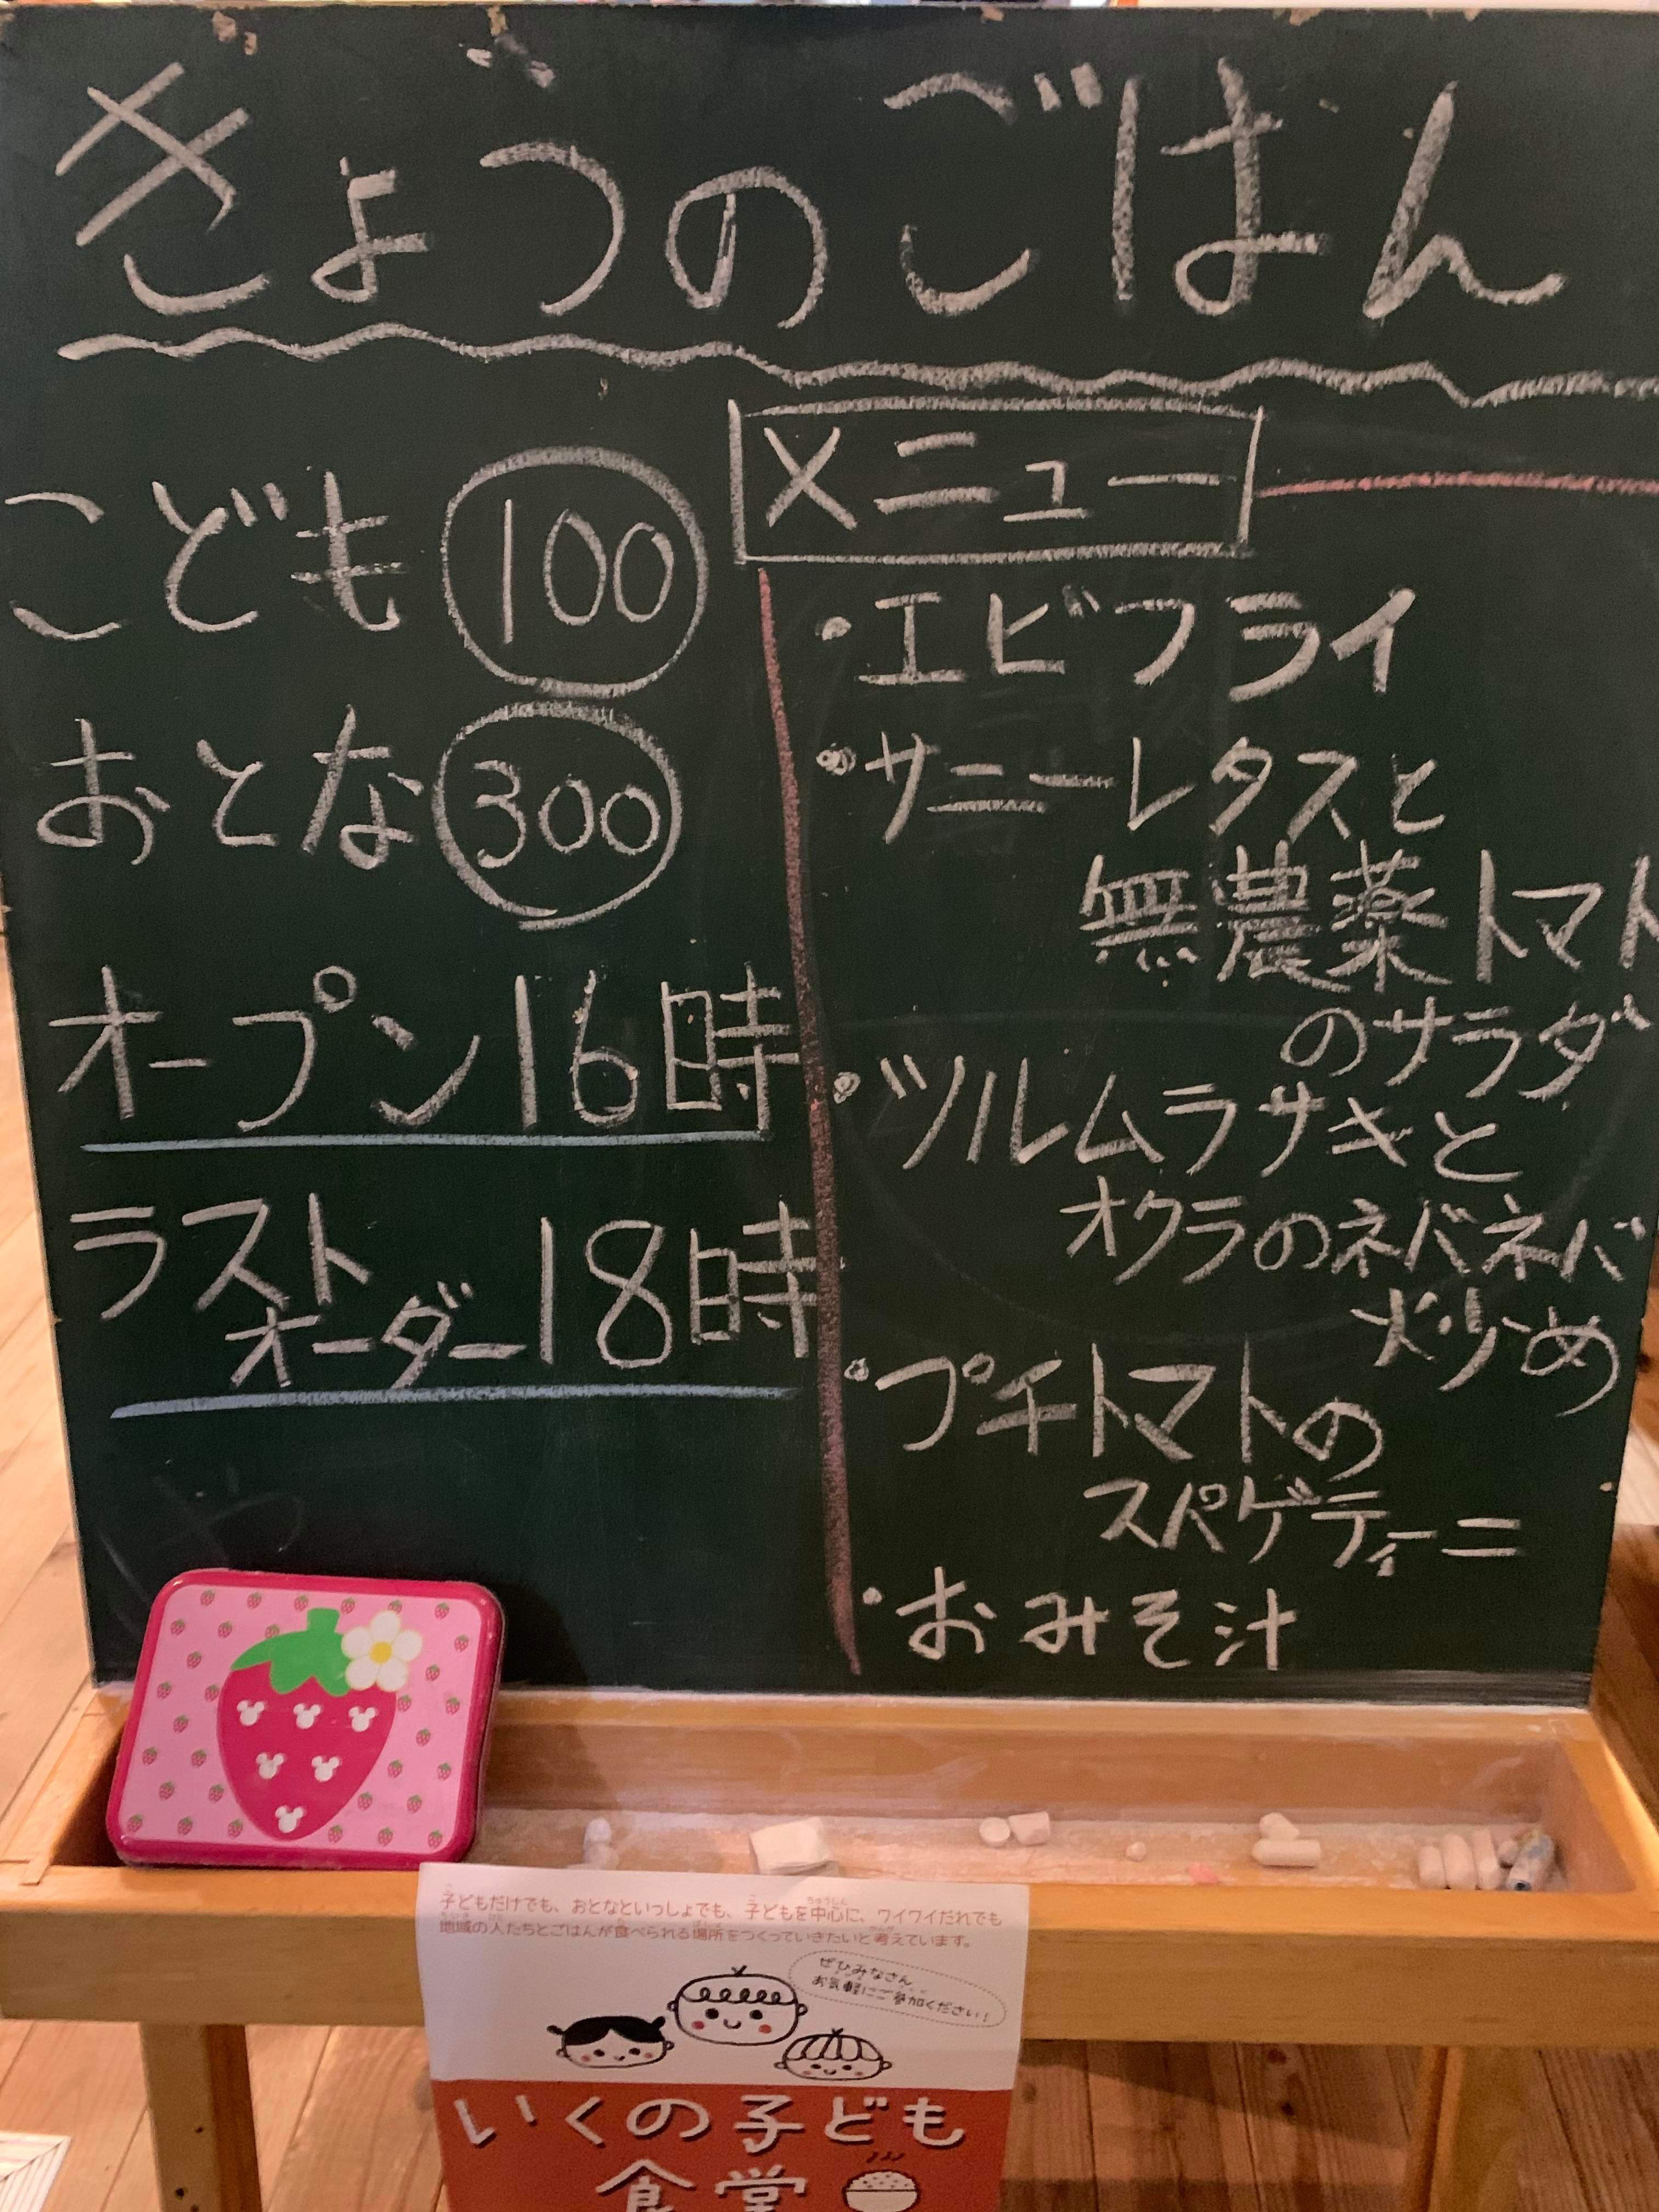 きょうのごはん
こども 100
おとな 300
オープン16時
ラスト
オーダー18時
メニュー
・エビフライ
・サニーレタスと
無農薬トマト
のサラダ
・ツルムラサキと
オクラのネバネバ
炒め
・プチトマトの
スパゲティーニ
・おみそ汁
子どもだけでも、おとなといっしょでも、子どもを中心に、ワイワイだれでも
地域の人たちとごはんが食べられる場所をつくっていきたいと考えています。
ぜひみなさん
お気軽にご参加ください！
いくの子ども
食堂